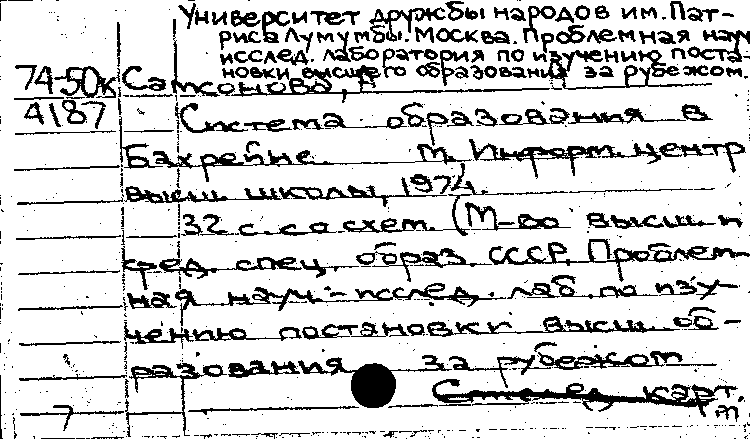 Университет дружбы народов им. Пат-
риса Лумумбы. Москва. Проблемная науч.
исслед. лаборатория по изучению поста-
новки высшего образования за рубежом.
74-50к Самсонова,
4187 Система образования в
Бахрейне. М., Информ. центр
высш. школы, 1974.
32 с. со схем. (М-во высш. и
сред. спец. образ. СССР. Проблем-
ная науч.-исслед. лаб. по изу-
чению постановки высш. об-
разования за рубежом
карт.
7